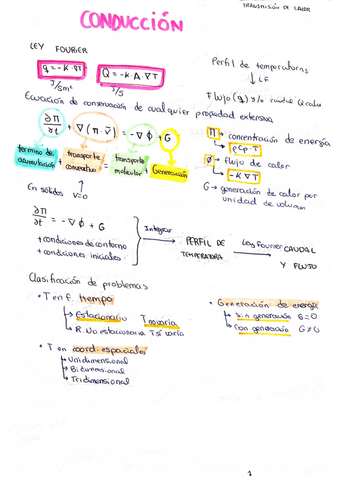 TRANSMISIÓN DE CALOR
CONDUCCIÓN
LEY FOURIER
q = -K·∇T
J/sm²
Q = -K·A·∇T
J/s
Perfil de temperaturas
↓ LF
Flujo (q) y/o caudal Q calor
Ecuación de conservación de cualquier propiedad extensiva
∂Π/∂t + ∇(Π·v̄) = -∇Φ + G
término de acumulación + transporte convectivo = transporte molecular + Generación
Π → concentración de energía
↳ ρCp·T
Φ → flujo de calor
↳ -K∇T
G → generación de calor por unidad de volumen
En sólidos v=0
∂Π/∂t = -∇Φ + G
+ condiciones de contorno
+ condiciones iniciales
Integrar
→ PERFIL DE TEMPERATURA
Ley Fourier → CAUDAL Y FLUJO
Clasificación de problemas
• T en f. tiempo
↳ Estacionario T no varía
↳ R. No estacionaria T sí varía
• T en coord. espaciales
↳ Unidimensional
↳ Bidimensional
↳ Tridimensional
• Generación de energía
↳ sin generación G=0
↳ con generación G≠0
1